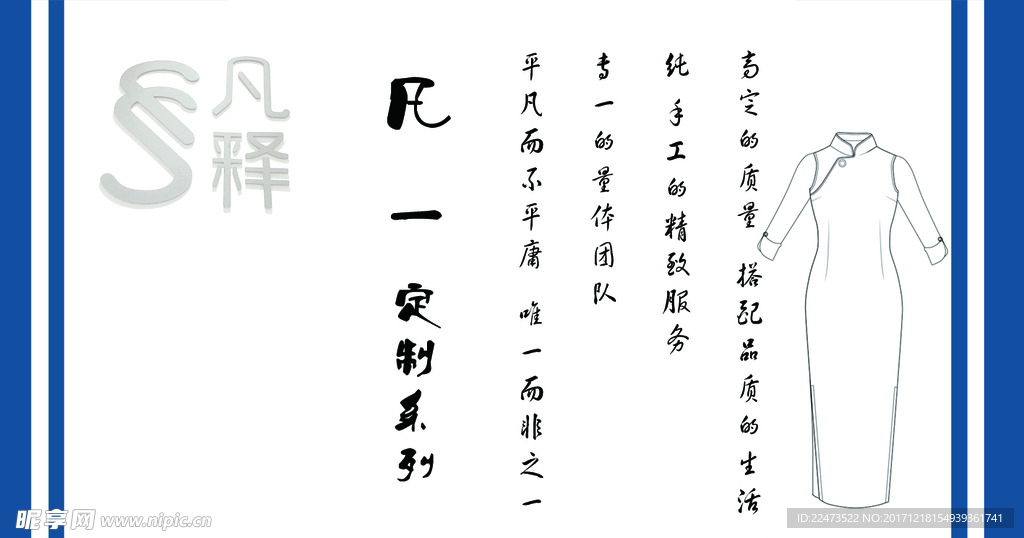 凡释
凡一定制系列
平凡而不平庸 唯一而非之一
专一的量体团队
纯手工的精致服务
高定的质量 搭配品质的生活
昵享网 www.nipic.cn
ID:22473522 NO:20171218154939361741